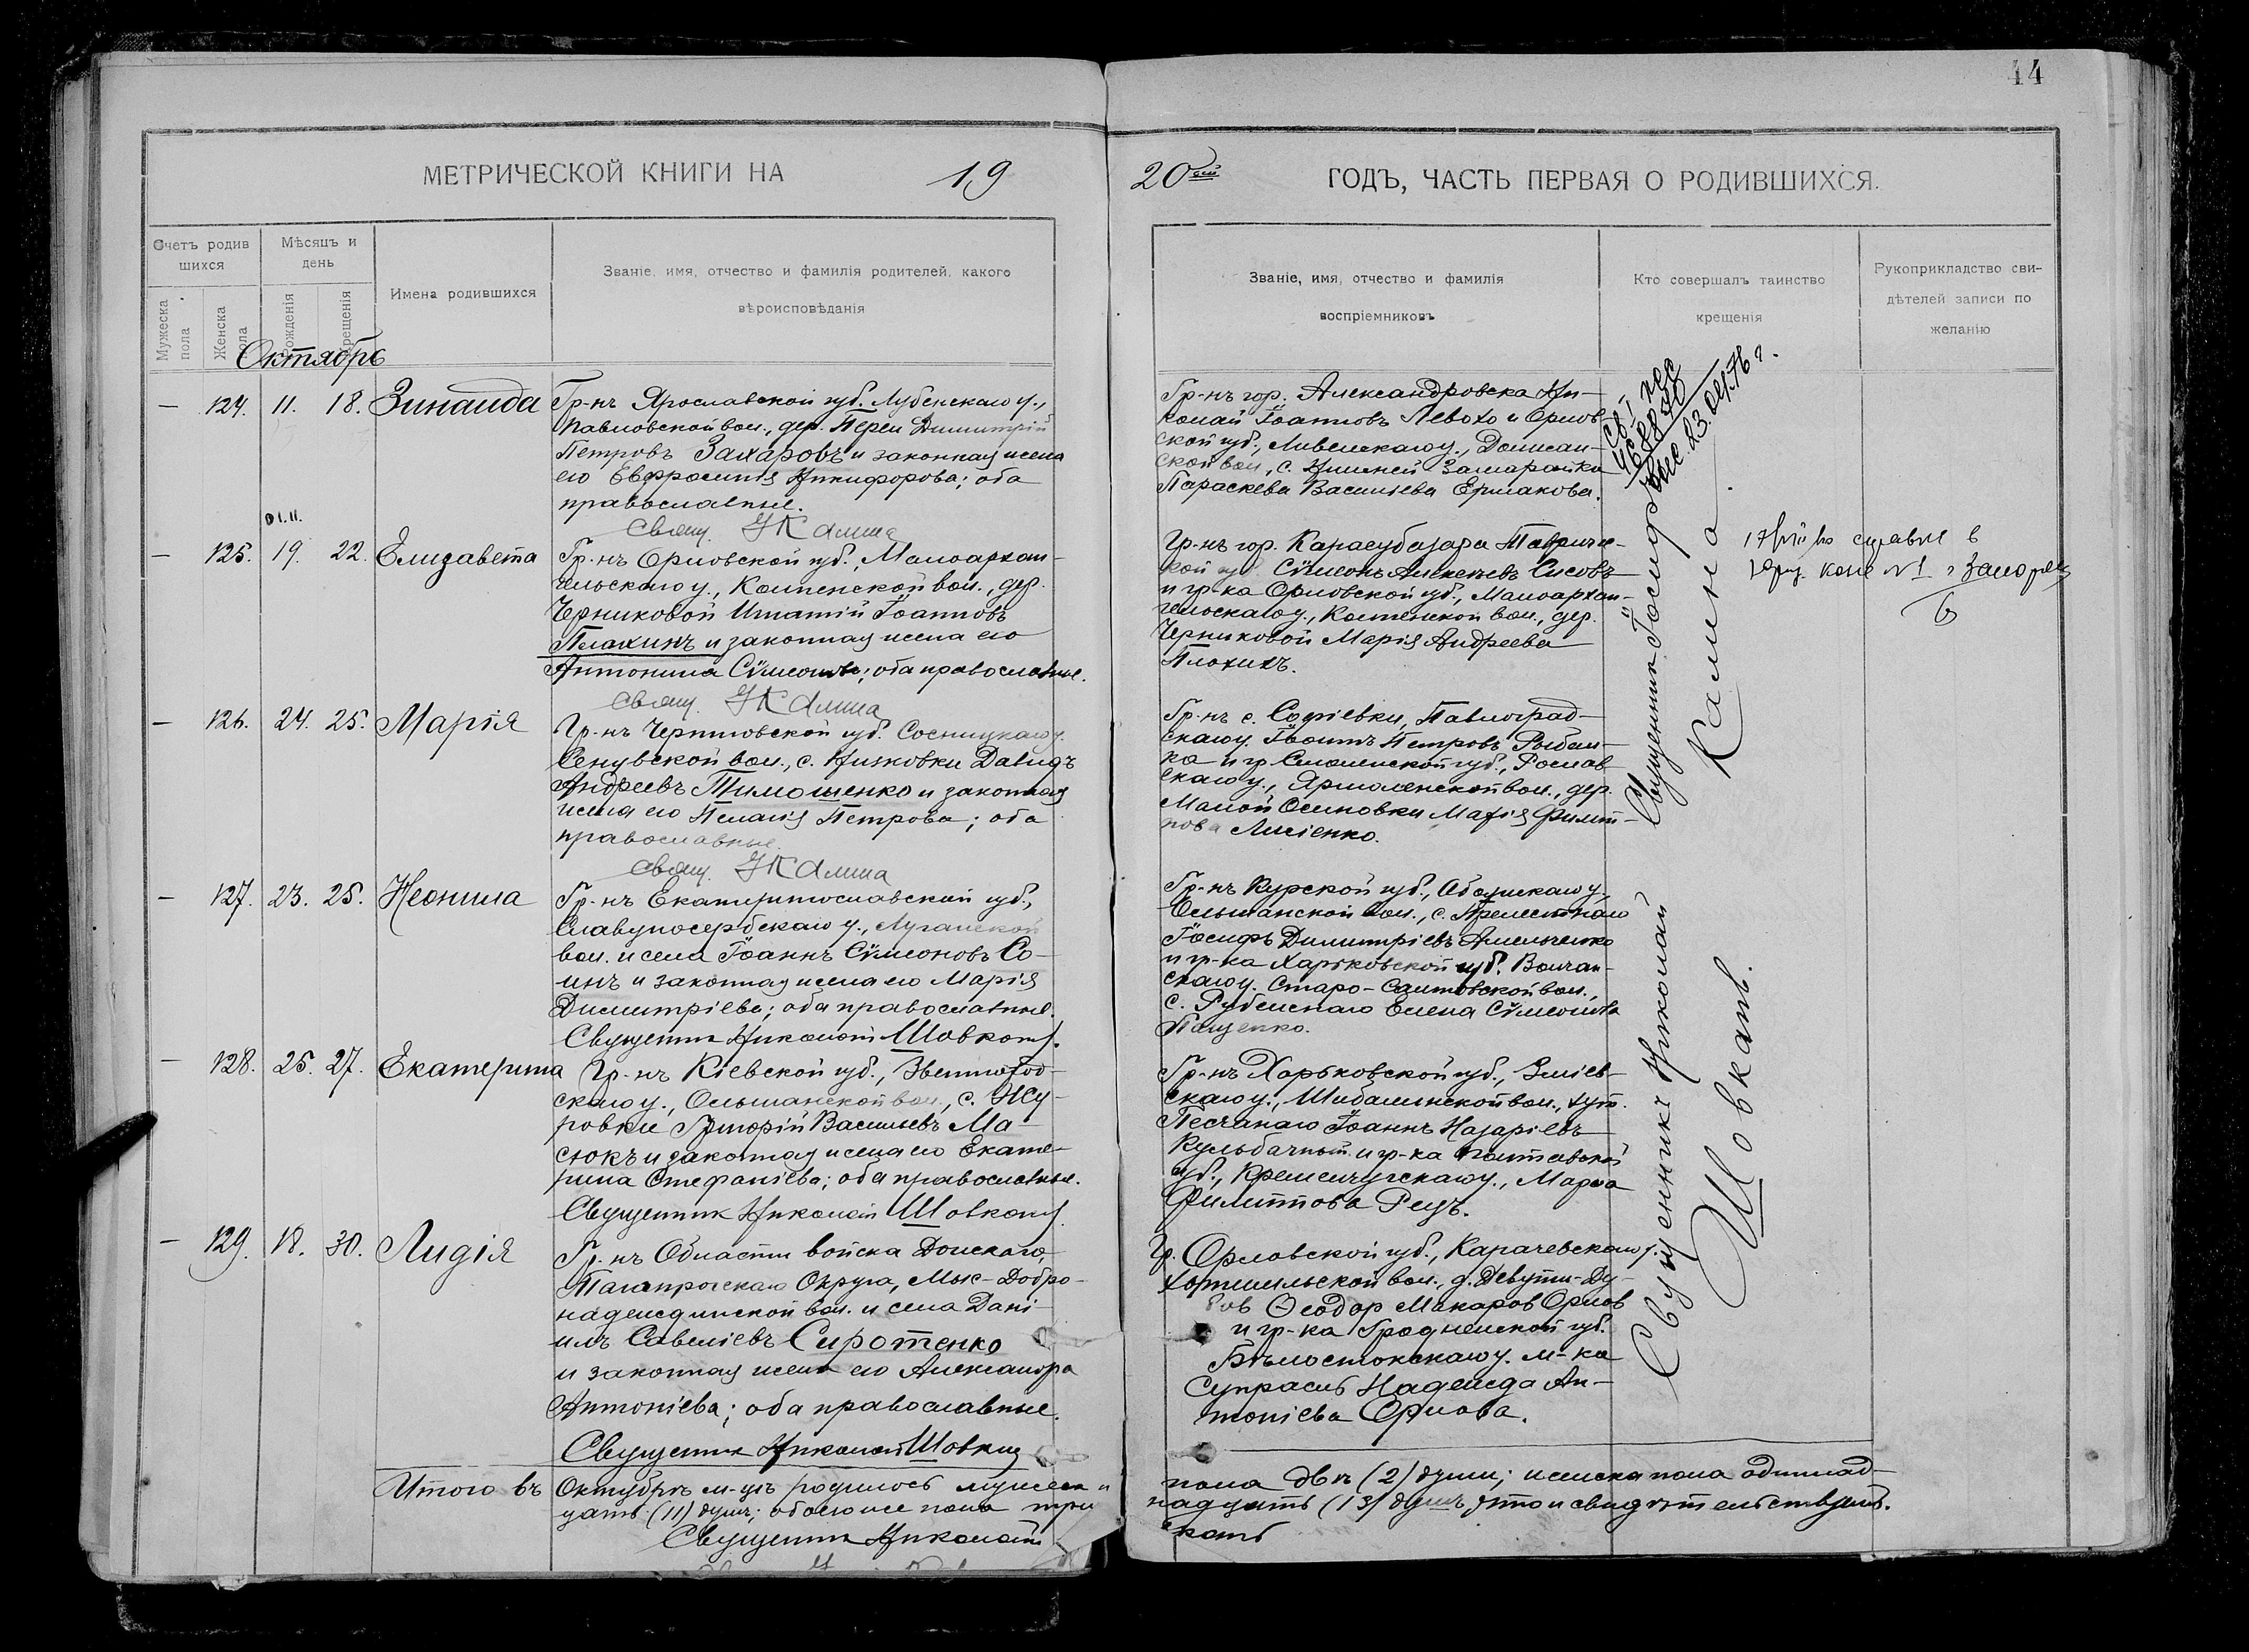 44
МЕТРИЧЕСКОЙ КНИГИ НА 19
20ый ГОДЪ, ЧАСТЬ ПЕРВАЯ О РОДИВШИХСЯ.
Счетъ родив
шихся
Мужеска пола
Женска пола
Мѣсяцъ и
день
Рожденія
Крещенія
Имена родившихся
Званіе, имя, отчество и фамилія родителей, какого
вѣроисповѣданія
Званіе, имя, отчество и фамилія
воспріемниковъ
Кто совершалъ таинство
крещенія
Рукоприкладство сви-
дѣтелей записи по
желанію
Октябрь
— 124. 11. 18. Зинаида
Гр-нъ Ярославской губ. Любенскаго у.,
Павловской вол., дер. Димитрій
Петровъ Захаровъ и законная жена
его Евфросинія Никифорова; оба
православные.
Свящ. І Калина
Гр-нъ гор. Александровска Ни-
колай Іоанновъ Левохо и Орлов-
ской губ., Ливенскаго у.,
ской вол., с. Нижней Замарайки
Параскева Васильева Ермакова.
— 125. 19. 22. Елизавета
Гр-нъ Орловской губ., Малоархан-
гельскаго у., вол., дер.
Черниковой Игнатій Іоанновъ
Плахинъ и законная жена его
Антонина Сѵмеонова; оба православные.
Свящ. І Калина
Гр-нъ гор. Карасубазара Тавриче-
ской губ. Сѵмеонъ Алексеевъ
и гр-ка Орловской губ., Малоархан-
гельскаго у., вол., дер.
Черниковой Марія Андреева
Плохихъ.
— 126. 24. 25. Марія
Гр-нъ Черниговской губ. Сосницкаго у.
вол., с. Низковки Давидъ
Андреевъ Тимошенко и законная
жена его Пелагія Петрова; оба
православные.
Свящ. І Калина
Гр-нъ с. Софіевки, Павлоград-
скаго у. Іоаннъ Петровъ Рыбал-
ка и гр. Смоленской губ., Рослав
скаго у., вол., дер.
Малой Осиновки Марія Филип-
пова Лисіенко.
— 127. 23. 25. Неонила
Гр-нъ Екатеринославской губ.,
Славяносербскаго у., Луганской
вол. и села Іоаннъ Сѵмеоновъ Со-
инъ и законная жена его Марія
Димитріева; оба православные.
Священник Николай Шовкатъ.
Гр-нъ Курской губ., Обоянскаго у.,
Ольшанской вол., с. Прелестнаго
Іосифъ Димитріевъ Амельченко
и гр-ка Харьковской губ. Волчан-
скаго у. Старо-Салтовской вол.,
с. Рубежнаго Елена Сѵмеонова
Пащенко.
— 128. 25. 27. Екатерина
Гр-нъ Кіевской губ., Звенигород-
скаго у., Ольшанской вол., с. Жу-
ровки Григорій Васильевъ Ма-
сюкъ и законная жена его Екате-
рина Стефаніева; оба православные.
Священник Николай Шовкатъ.
Гр-нъ Харьковской губ., Зміев-
скаго у., Шебелинской вол., хут.
Песчанаго Іоаннъ Назаріевъ
Кульбачный и гр-ка Полтавской
губ., Кременчугскаго у., Марѳа
Филиппова
— 129. 18. 30. Лидія
Гр-нъ Области войска Донскаго,
Таганрогскаго Округа, Мыс-Добро-
надеждинской вол. и села Дані-
илъ Савеліевъ Сиротенко
и законная жена его Александра
Антоніева; оба православные.
Священник Николай Шовкатъ
Гр. Орловской губ., Карачевскаго у.
вол., д.
Ѳеодор Макаров Орлов
и гр-ка Гродненской губ.
Бѣлостокскаго у. м-ка
Супрасль Надежда Ан-
тоніева Орлова.
Священник Іосиф
Калина.
Священникъ Николай
Шовкатъ.
Итого въ Октябрѣ м-цѣ родилось мужеска
пола двѣ (2) души; женска пола одиннад-
цать (11) душъ; обоего же пола три
надцать (13) душъ, что и свидѣтельствуемъ.
Священник Николай
катъ